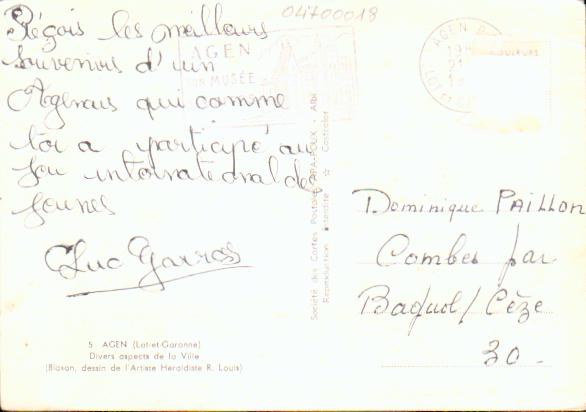 04700018
Réçois les meilleurs
souvenirs d'un
Agenais qui comme
toi a participé au
Jeu international des
Jeunes
Luc
AGEN
SON MUSÉE
AGEN
5 AGEN (Lot-et-Garonne)
Divers aspects de la Ville
(Blason, dessin de l'Artiste Heraldiste R. Louis)
Société des Cartes Postales APA-POUX - Albi
Reproduction interdite ☆ Contrales
Dominique PAILLON
Combes par
/ Cèze
30 -